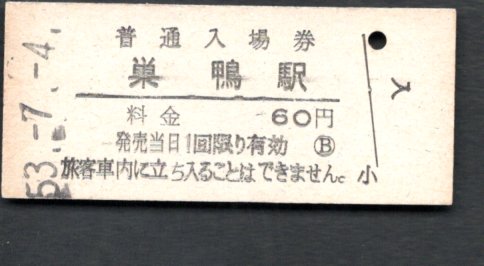 普通入場券
巣鴨駅
料金 60円
発売当日1回限り有効 Ⓑ
旅客車内に立ち入ることはできません。
小
入
53.-7.-4